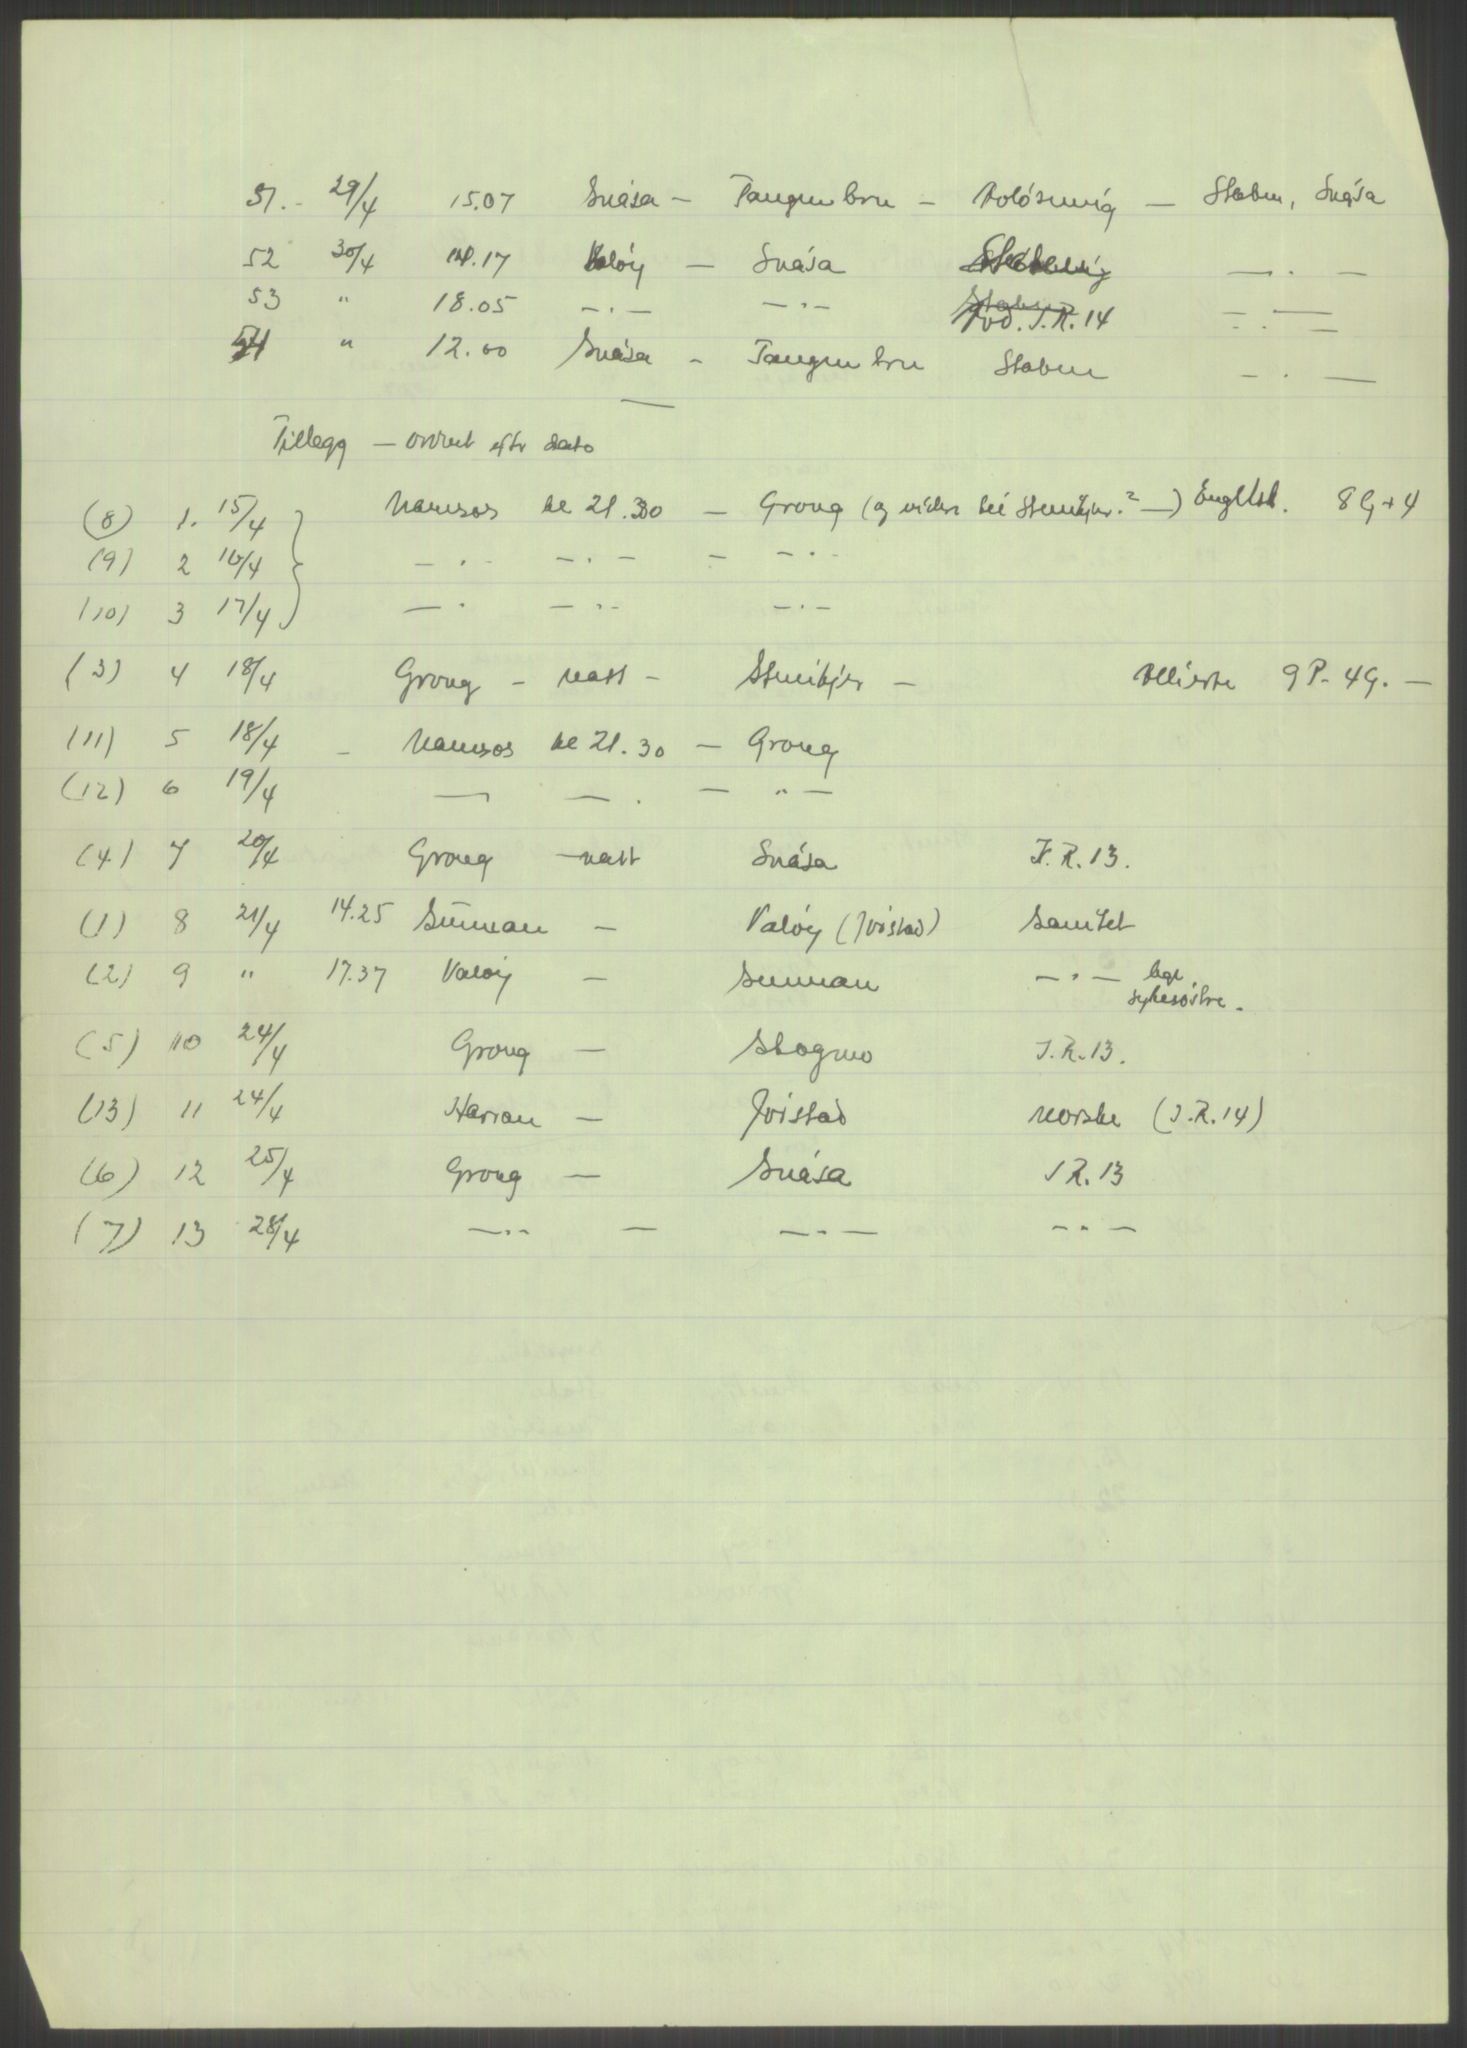 51. - 29/4 15.07 Snåsa - Tangen bru - - Staben, Snåsa
52 30/4 14.17 Valøy - Snåsa — . —
53 " 18.05 — . — — . — I.R. 14 — . —
54 " 12.00 Snåsa - Tangen bru Staben — . —
Tillegg - ordnet eftr dato
(8) 1. 15/4 Namsos kl 21.30 - Grong (og videre til Steinkjer? —) Englsk. 8 G + 4
(9) 2 16/4 — . — — . — - — . —
(10) 3 17/4 — . — . — — . —
(3) 4 18/4 Grong - natt - Steinkjer - Allierte 9 P - 4G. —
(11) 5 18/4 - Namsos kl 21.30 - Grong
(12) 6 19/4 — — . — " —
(4) 7 20/4 Grong - natt Snåsa I.R.13.
(1) 8 21/4 14.25 Sunnan - Valøy (Jørstad) Sanitet
(2) 9 " 17.37 Valøy - Sunnan — " — lege,
sykesøstre.
(5) 10 24/4 Grong - Skogmo I.R.13.
(13) 11 24/4 Harran - Jørstad Norske (I.R.14)
(6) 12 25/4 Grong - Snåsa I R.13
(7) 13 28/4 — " — — . — — " —